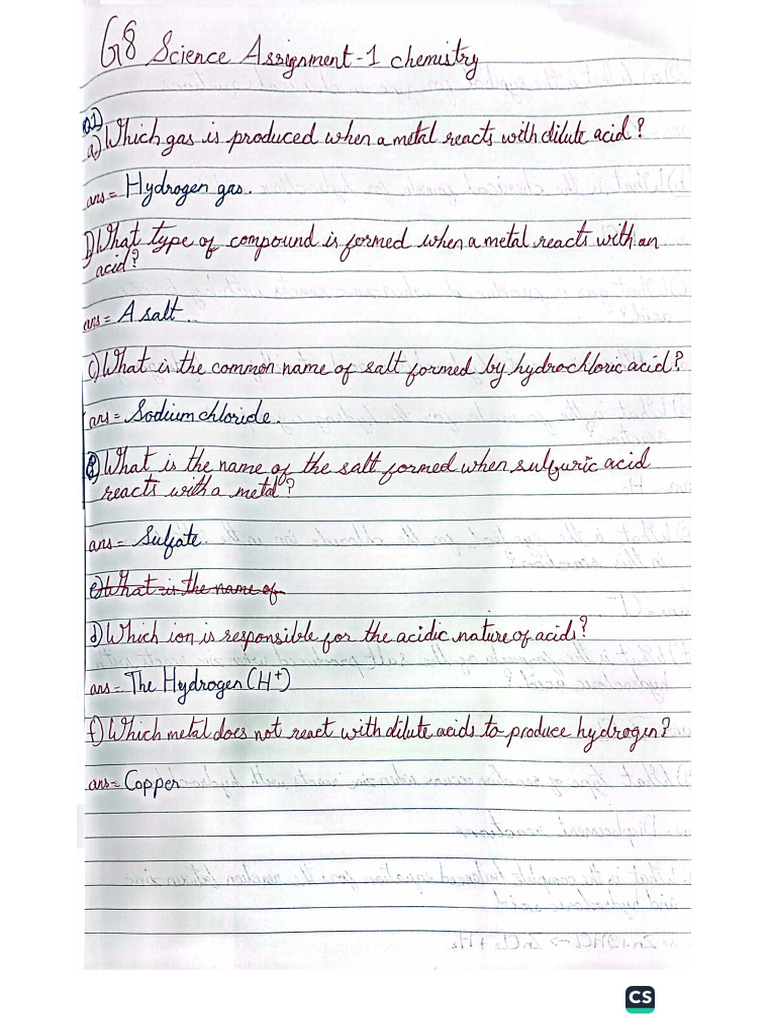 G8 Science Assignment-1 chemistry
Q1)
a) Which gas is produced when a metal reacts with dilute acid?
ans = Hydrogen gas.
b) What type of compound is formed when a metal reacts with an
acid?
ans = A salt.
c) What is the common name of salt formed by hydrochloric acid?
ans = Sodium chloride.
What is the name of the salt formed when sulfuric acid
reacts with a metal?
ans = Sulfate.
e) What is the name of
d) Which ion is responsible for the acidic nature of acids?
ans = The Hydrogen (H⁺)
f) Which metal does not react with dilute acids to produce hydrogen?
ans = Copper
CS